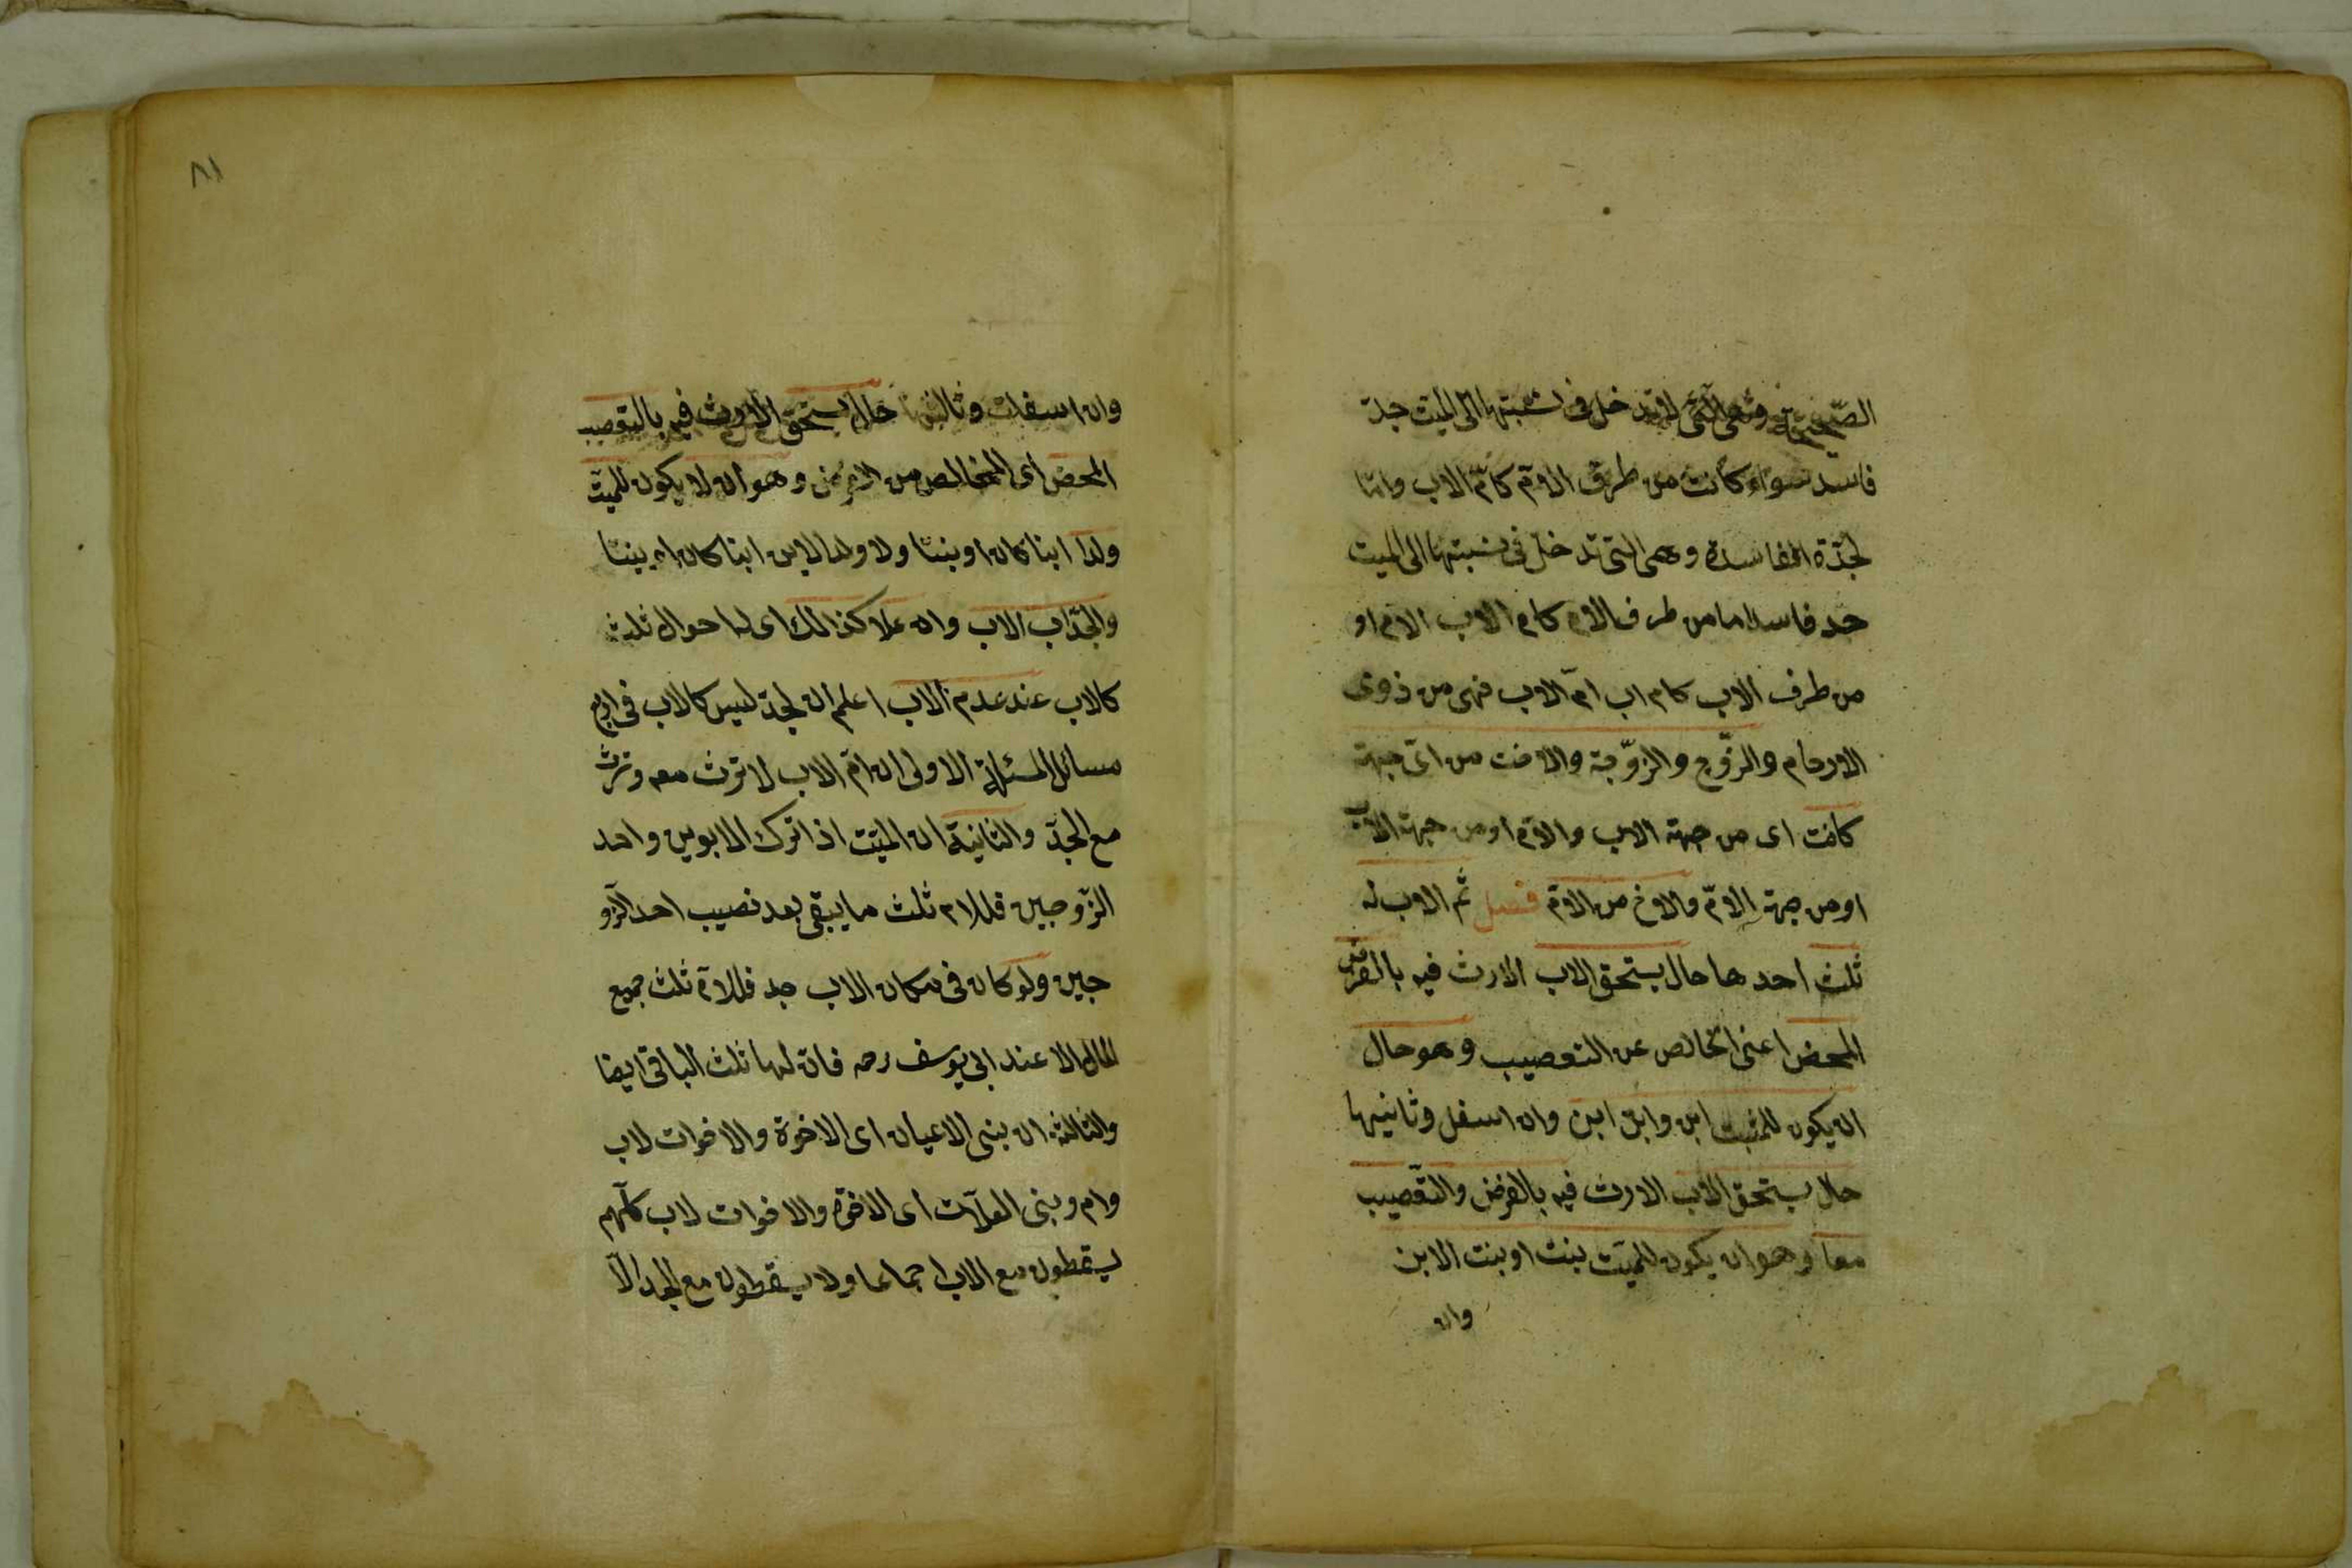 الصّحيحة وهى الّتى لا تدخل فى نسبتها الى الميّت جدّ
فاسد سواء كانت من طرف الامّ كامّ الاب وامّا
لجدّة الفاسدة وهى التى تدخل فى نسبتها الى الميت
جد فاسد اما من طرف الام كام الاب الام او
من طرف الاب كام اب امّ الاب فهى من ذوى
الارحام والزّوج والزّوجة والاخت من اىّ جهة
كانت اى من جهة الاب والامّ او من جهة الاب
او من جهة الامّ والاخ من الامّ فصل ثم الاب له
ثلث احدها حال يستحق الاب الارث فيه بالفرض
المحض اعنى الخالص عن التعصيب وهو حال
ان يكون للميت ابن وابن ابن وان اسفل وثانيها
حال يستحق الاب الارث فيه بالفرض والتّعصيب
معا وهو ان يكون للميّت بنت او بنت الابن
وان
٨١
وان اسفلت وثالثها حال يستحق الارث فيه بالتعصيب
المحض اى الخالص من الفرض وهو ان لا يكون للميّت
ولد ابنا كان او بنتا ولا ولد الابن ابنا كان او بنتا
والجدّ اب الاب وان علا كذالك اى له احوال ثلث
كالاب عند عدم الاب اعلم ان لجدّ ليس كالاب فى اربع
مسائل المسئلة الاولى ان امّ الاب لا ترث معه وترث
مع الجدّ والثانية ان الميّت اذا ترك الابوين واحد
الزّوجين فللام ثلث ما يبقى بعد نصيب احد الزّو
جين ولو كان فى مكان الاب جد فللامّ ثلث جميع
المال الا عند ابى يوسف رحه فان لها ثلث الباقى ايضا
والثالثة ان بنى الاعيان اى الاخوة والاخوات لاب
وام وبنى العلّات اى الاخوة والاخوات لاب كلّهم
يسقطون مع الاب اجماعا ولا يسقطون مع الجد الّا